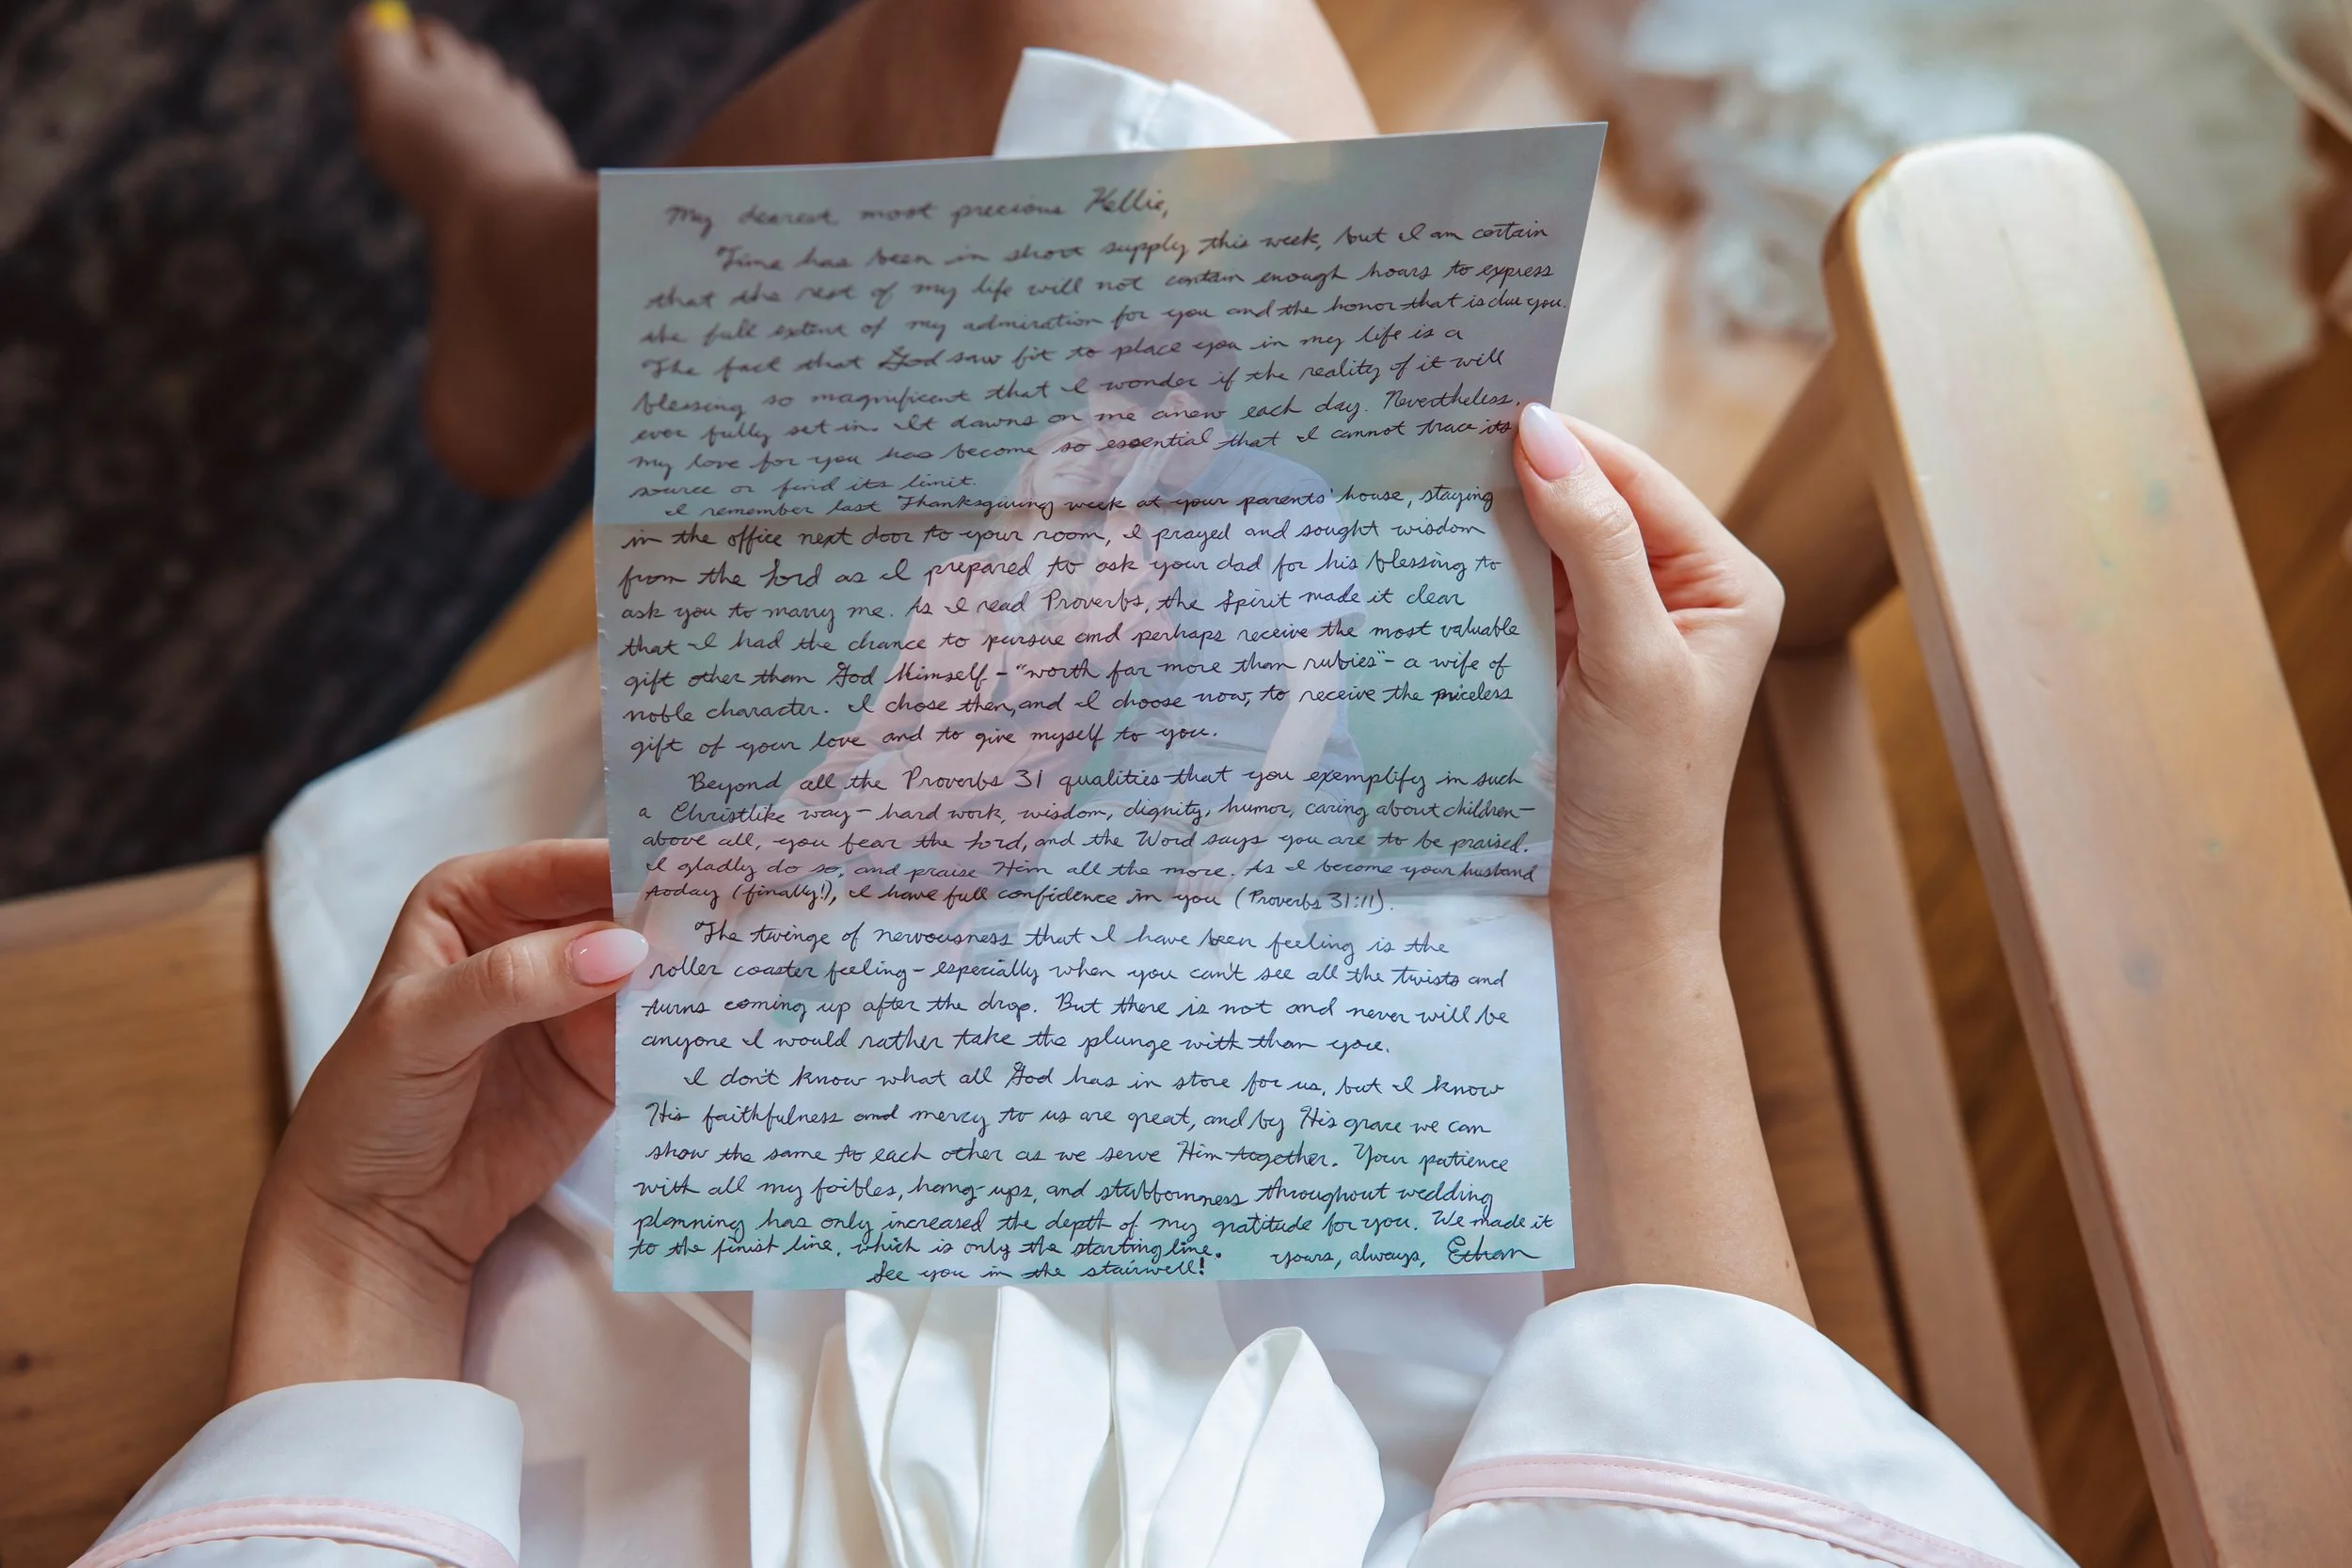 My dearest most precious Kellie,
Time has been in short supply this week, but I am certain
that the rest of my life will not contain enough hours to express
the full extent of my admiration for you and the honor that is due you.
The fact that God saw fit to place you in my life is a
blessing so magnificent that I wonder if the reality of it will
ever fully set in. It dawns on me anew each day. Nevertheless,
my love for you has become so essential that I cannot trace its
source or find its limit.
I remember last Thanksgiving week at your parents' house, staying
in the office next door to your room, I prayed and sought wisdom
from the Lord as I prepared to ask your dad for his blessing to
ask you to marry me. As I read Proverbs, the Spirit made it clear
that I had the chance to pursue and perhaps receive the most valuable
gift other than God Himself - "worth far more than rubies" - a wife of
noble character. I chose then, and I choose now, to receive the priceless
gift of your love and to give myself to you.
Beyond all the Proverbs 31 qualities that you exemplify in such
a Christlike way - hard work, wisdom, dignity, humor, caring about children -
above all, you fear the Lord, and the Word says you are to be praised.
I gladly do so, and praise Him all the more. As I become your husband
today (finally!), I have full confidence in you (Proverbs 31:11).
The twinge of nervousness that I have been feeling is the
roller coaster feeling - especially when you can't see all the twists and
turns coming up after the drop. But there is not and never will be
anyone I would rather take the plunge with than you.
I don't know what all God has in store for us, but I know
His faithfulness and mercy to us are great, and by His grace we can
show the same to each other as we serve Him together. Your patience
with all my foibles, hang-ups, and stubbornness throughout wedding
planning has only increased the depth of my gratitude for you. We made it
to the finish line, which is only the starting line. Yours, always, Ethan
See you in the stairwell!